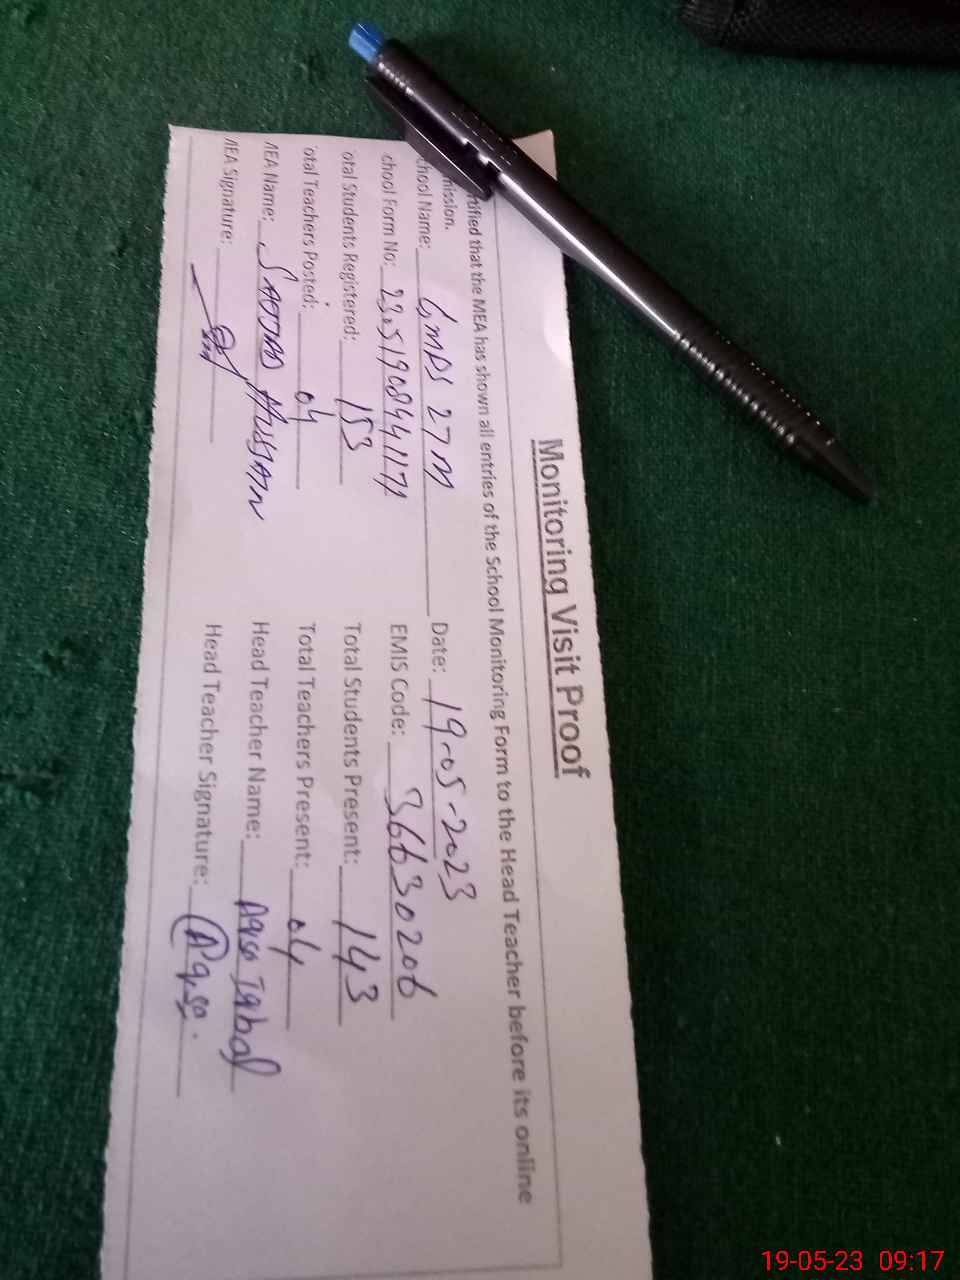 Monitoring Visit Proof
rtified that the MEA has shown all entries of the School Monitoring Form to the Head Teacher before its online
mission.
chool Name: GMPS 27 M Date: 19-05-2023
chool Form No: EMIS Code: 36630206
otal Students Registered: 153 Total Students Present: 143
otal Teachers Posted: 04 Total Teachers Present: 04
MEA Name: SADDAD HUSSAIN Head Teacher Name: Aqsa Iqbal
MEA Signature: Head Teacher Signature: Aqsa.
19-05-23 09:17